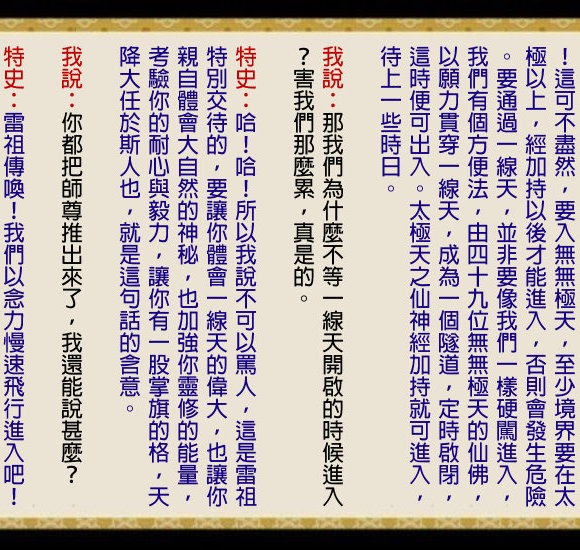 ！這可不盡然，要入無無極天，至少境界要在太
極以上，經加持以後才能進入，否則會發生危險
。要通過一線天，並非要像我們一樣硬闖進入，
我們有個方便法，由四十九位無無極天的仙佛，
以願力貫穿一線天，成為一個隧道，定時啟閉，
這時便可出入。太極天之仙神經加持就可進入，
待上一些時日。
我說：那我們為什麼不等一線天開啟的時候進入
？害我們那麼累，真是的。
特史：哈！哈！所以我說不可以罵人，這是雷祖
特別交待的，要讓你體會一線天的偉大，也讓你
親自體會大自然的神秘，也加強你靈修的能量，
考驗你的耐心與毅力，讓你有一股掌旗的格，天
降大任於斯人也，就是這句話的含意。
我說：你都把師尊推出來了，我還能說甚麼？
特史：雷祖傳喚！我們以念力慢速飛行進入吧！